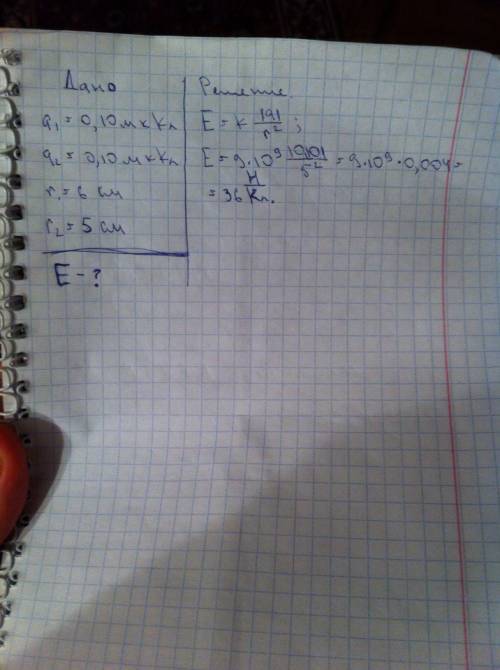 Дано
q₁ = 0,10 мк Кл
q₂ = 0,10 мк Кл
r₁ = 6 см
r₂ = 5 см
E - ?
Решение.
E = k |q| / r² ;
E = 9·10⁹ |0,10| / 5² = 9·10⁹ · 0,004 =
= 36 Н/Кл.